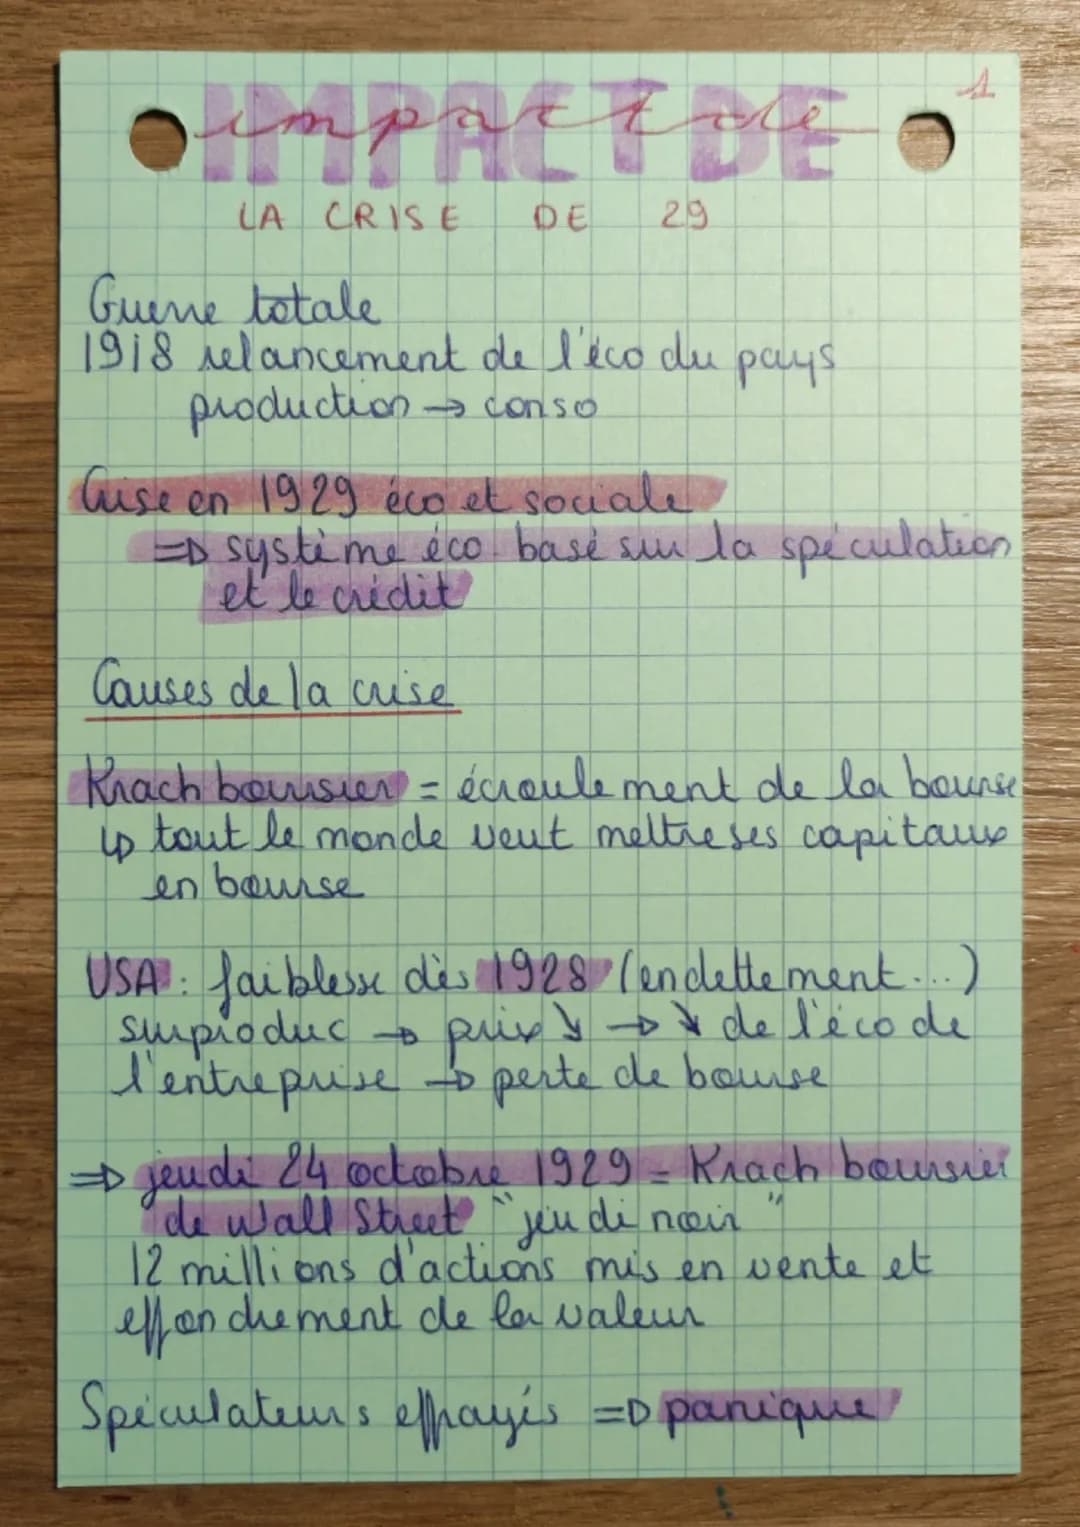 1
IMPACT DE
impact de
LA CRISE DE 29
Guerre totale
1918 relancement de l'éco du pays
production → conso
Crise en 1929 éco et sociale
⇒ système éco basé sur la spéculation
et le crédit
Causes de la crise
Krach boursier = écroulement de la bourse
↳ tout le monde veut mettre ses capitaux
en bourse
USA : faiblesse dès 1928 (endettement...)
surproduc → prix ↘ → ↘ de l'éco de
l'entreprise → perte de bourse
⇒ jeudi 24 octobre 1929 = Krach boursier
de Wall Street "jeudi noir"
12 millions d'actions mis en vente et
effondrement de la valeur
Spéculateurs effrayés ⇒ panique